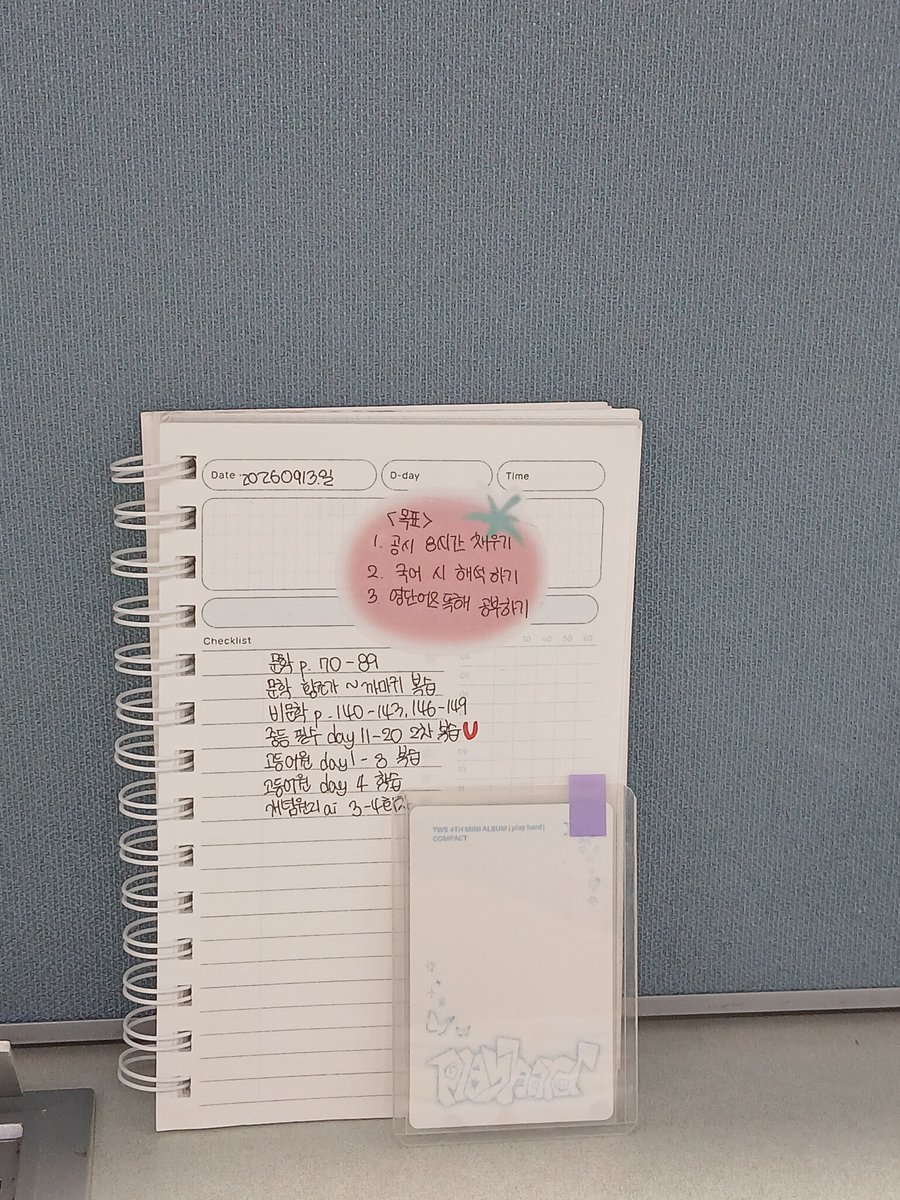 Date 20260913.일
D-day
Time
<목표>
1. 공시 8시간 채우기
2. 국어 시 해석하기
3. 영단어와 독해 공부하기
Checklist
10 40 50 60
문학 p. 70-89
문학 ~ 까마귀 복습
비문학 p. 140-143, 146-149
중등 필수 day 11-20 2차 복습
고등어원 day 1-3 복습
고등어원 day 4 학습
개념원리 ai 3-4
TWS 4TH MINI ALBUM (play hard)
COMPACT
play hard